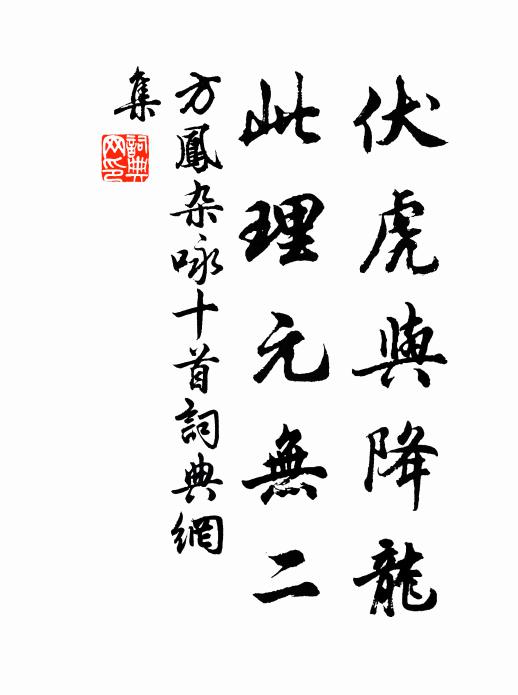 伏虎與降龍
此理元無二
方鳳杂咏十首詞典網
集
詞典網印